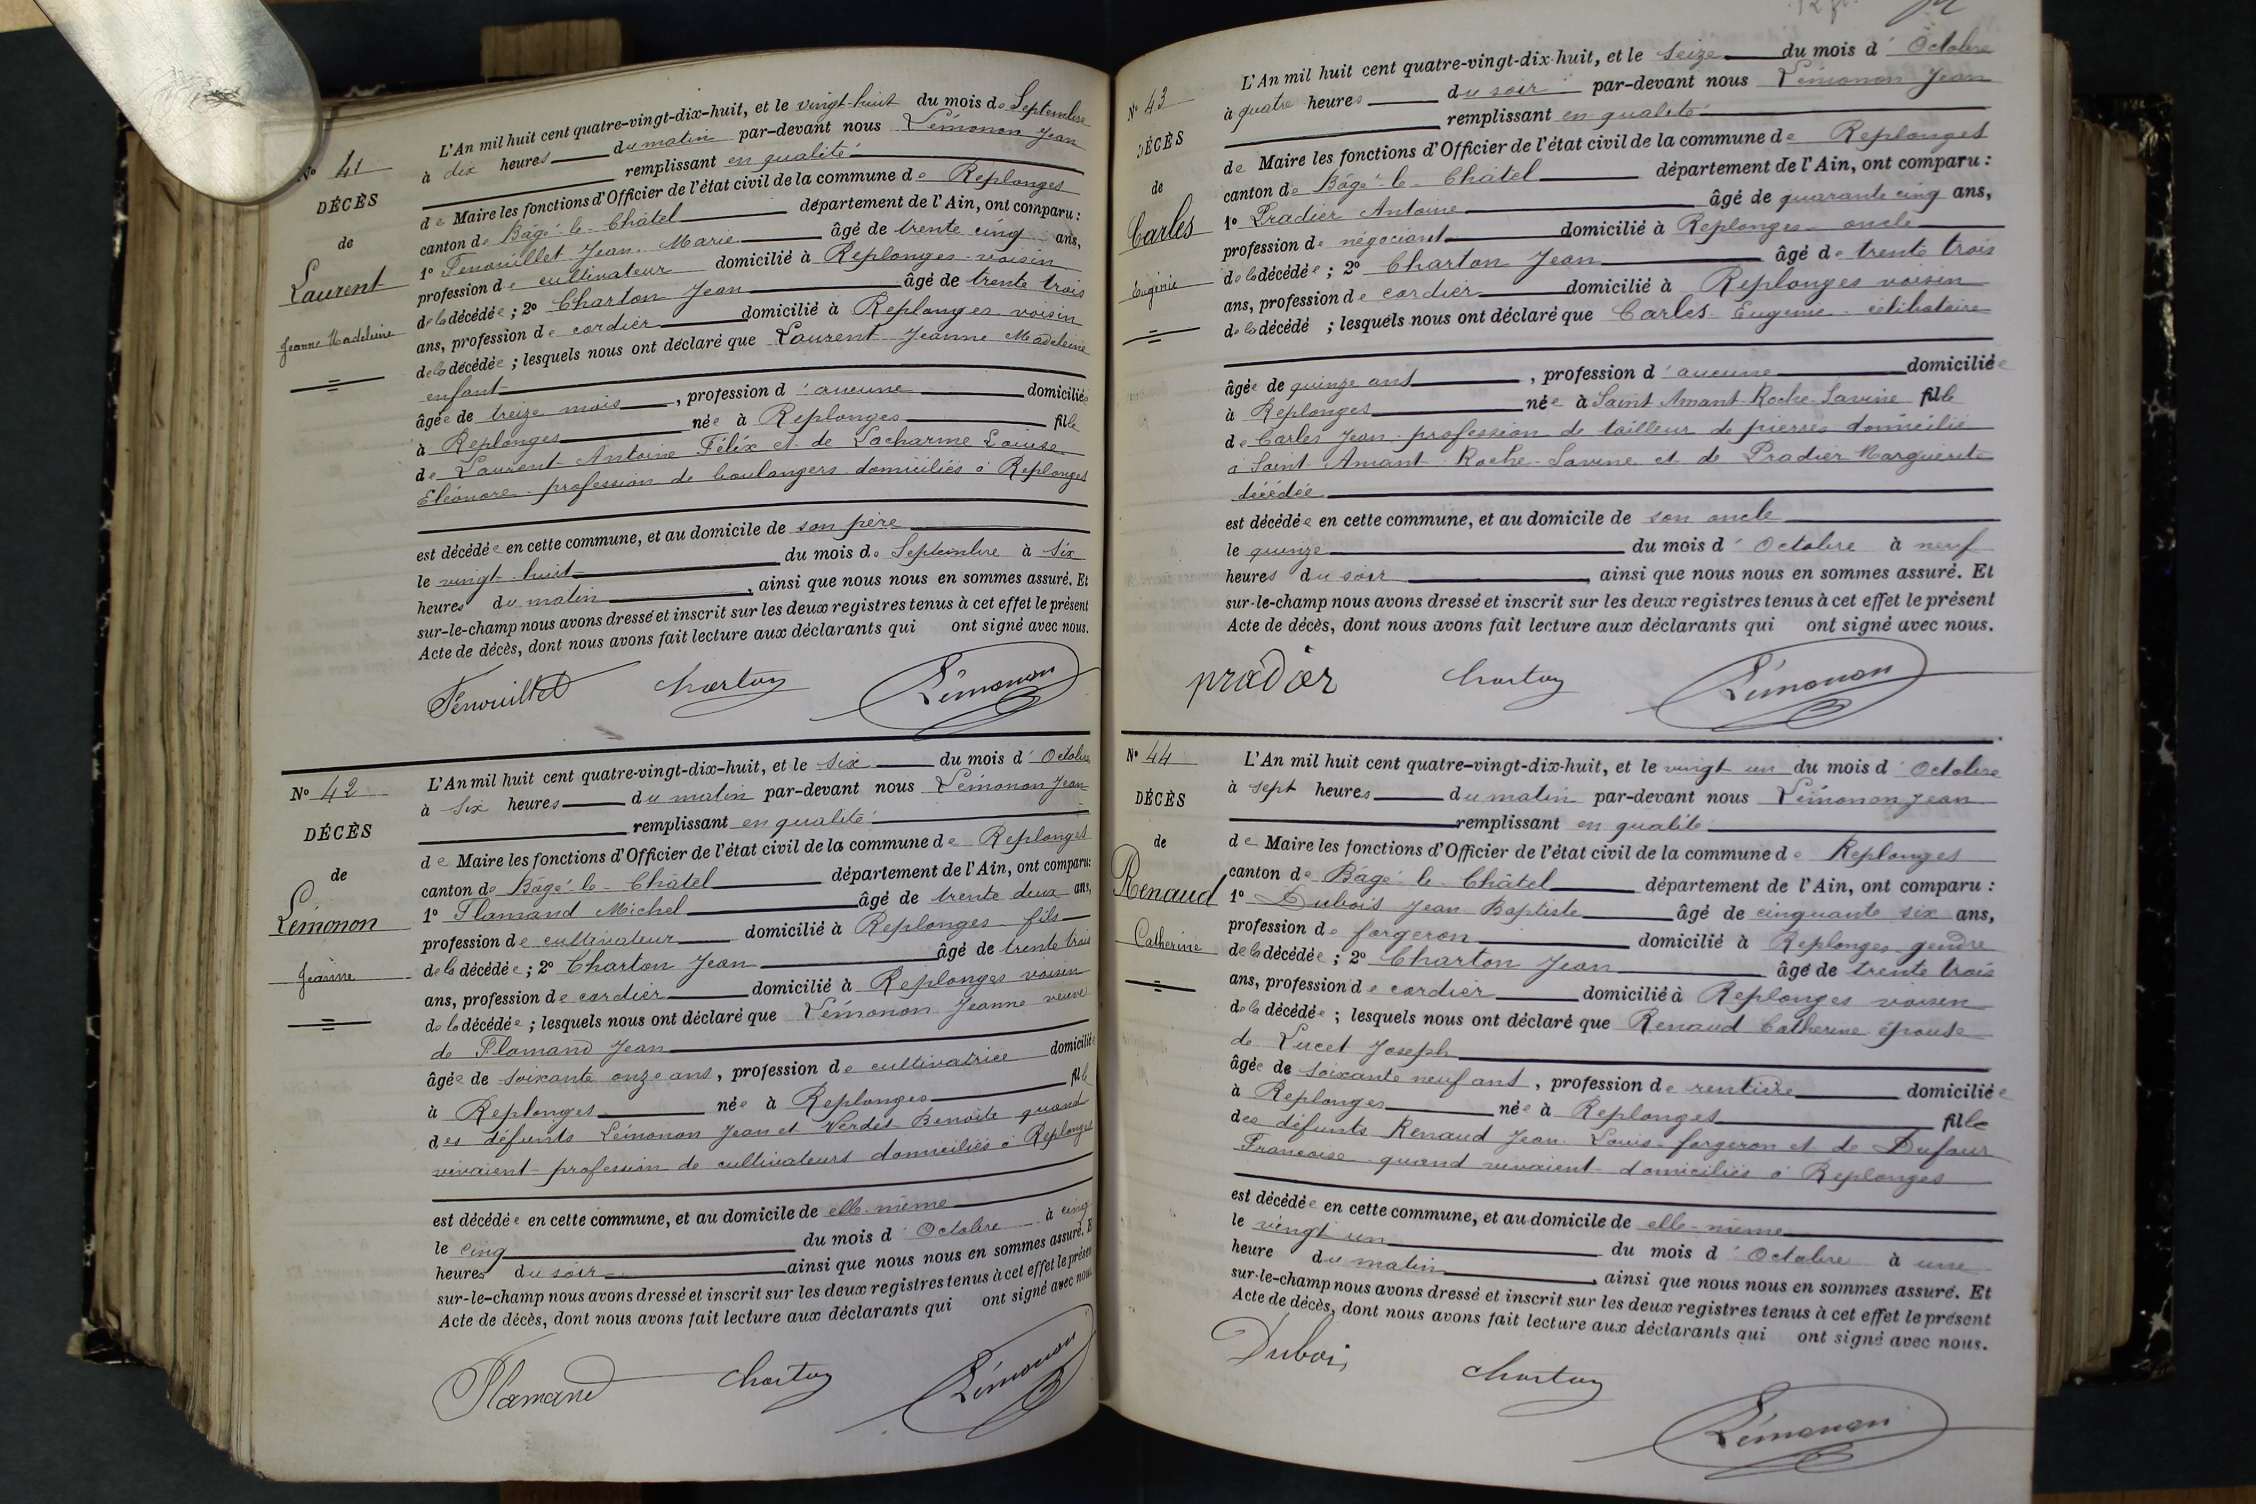 N° 41
DÉCÈS
de
Laurent
Jeanne Madeleine
L'An mil huit cent quatre-vingt-dix-huit, et le vingt-huit du mois de Septembre
à dix heures du matin par-devant nous Lémonon Jean
remplissant en qualité
de Maire les fonctions d'Officier de l'état civil de la commune de Replonges
canton de Bâgé-le-Châtel département de l'Ain, ont comparu :
1° Fenouillet Jean-Marie âgé de trente cinq ans,
profession de cultivateur domicilié à Replonges voisin
de la décédée ; 2° Charton Jean âgé de trente trois
ans, profession de cordier domicilié à Replonges voisin
de la décédée ; lesquels nous ont déclaré que Laurent Jeanne Madeleine
enfant
âgée de treize mois, profession d'aucune domiciliée
à Replonges née à Replonges fille
de Laurent Antoine Félix et de Lacharme Louise
Eléonore profession de boulangers domiciliés à Replonges
est décédée en cette commune, et au domicile de son père
le vingt-huit du mois de Septembre à six
heures du matin, ainsi que nous nous en sommes assuré. Et
sur-le-champ nous avons dressé et inscrit sur les deux registres tenus à cet effet le présent
Acte de décès, dont nous avons fait lecture aux déclarants qui ont signé avec nous.
Fenouillet Charton Lémonon
N° 42
DÉCÈS
de
Lémonon
Jeanne
L'An mil huit cent quatre-vingt-dix-huit, et le six du mois d'Octobre
à six heures du matin par-devant nous Lémonon Jean
remplissant en qualité
de Maire les fonctions d'Officier de l'état civil de la commune de Replonges
canton de Bâgé-le-Châtel département de l'Ain, ont comparu :
1° Flamand Michel âgé de trente deux ans,
profession de cultivateur domicilié à Replonges fils
de la décédée ; 2° Charton Jean âgé de trente trois
ans, profession de cordier domicilié à Replonges voisin
de la décédée ; lesquels nous ont déclaré que Lémonon Jeanne veuve
de Flamand Jean
âgée de soixante onze ans, profession de cultivatrice domiciliée
à Replonges née à Replonges fille
des défunts Lémonon Jean et Verdet Benoite quand
vivaient profession de cultivateurs domiciliés à Replonges
est décédée en cette commune, et au domicile de elle-même
le cinq du mois d'Octobre à cinq
heures du soir ainsi que nous nous en sommes assuré. Et
sur-le-champ nous avons dressé et inscrit sur les deux registres tenus à cet effet le présent
Acte de décès, dont nous avons fait lecture aux déclarants qui ont signé avec nous.
Flamand Charton Lémonon
N° 43
DÉCÈS
de
Carles
Eugénie
L'An mil huit cent quatre-vingt-dix-huit, et le seize du mois d'Octobre
à quatre heures du soir par-devant nous Lémonon Jean
remplissant en qualité
de Maire les fonctions d'Officier de l'état civil de la commune de Replonges
canton de Bâgé-le-Châtel département de l'Ain, ont comparu :
1° Pradier Antoine âgé de quarante cinq ans,
profession de négociant domicilié à Replonges oncle
de la décédée ; 2° Charton Jean âgé de trente trois
ans, profession de cordier domicilié à Replonges voisin
de la décédé ; lesquels nous ont déclaré que Carles Eugénie célibataire
âgée de quinze ans, profession d'aucune domiciliée
à Replonges née à Saint Amant-Roche-Savine fille
de Carles Jean profession de tailleur de pierres domicilié
à Saint-Amant-Roche-Savine et de Pradier Marguerite
décédée
est décédée en cette commune, et au domicile de son oncle
le quinze du mois d'Octobre à neuf
heures du soir, ainsi que nous nous en sommes assuré. Et
sur-le-champ nous avons dressé et inscrit sur les deux registres tenus à cet effet le présent
Acte de décès, dont nous avons fait lecture aux déclarants qui ont signé avec nous.
pradier Charton Lémonon
N° 44
DÉCÈS
de
Renaud
Catherine
L'An mil huit cent quatre-vingt-dix-huit, et le vingt un du mois d'Octobre
à sept heures du matin par-devant nous Lémonon Jean
remplissant en qualité
de Maire les fonctions d'Officier de l'état civil de la commune de Replonges
canton de Bâgé-le-Châtel département de l'Ain, ont comparu :
1° Dubois Jean Baptiste âgé de cinquante six ans,
profession de forgeron domicilié à Replonges gendre
de la décédée ; 2° Charton Jean âgé de trente trois
ans, profession de cordier domicilié à Replonges voisin
de la décédée ; lesquels nous ont déclaré que Renaud Catherine épouse
de Lucet Joseph
âgée de soixante neuf ans, profession de rentière domiciliée
à Replonges née à Replonges fille
des défunts Renaud Jean-Louis forgeron et de Dufour
Françoise quand vivaient domiciliés à Replonges
est décédée en cette commune, et au domicile de elle-même
le vingt un du mois d'Octobre à une
heure du matin, ainsi que nous nous en sommes assuré. Et
sur-le-champ nous avons dressé et inscrit sur les deux registres tenus à cet effet le présent
Acte de décès, dont nous avons fait lecture aux déclarants qui ont signé avec nous.
Dubois Charton
Lémonon